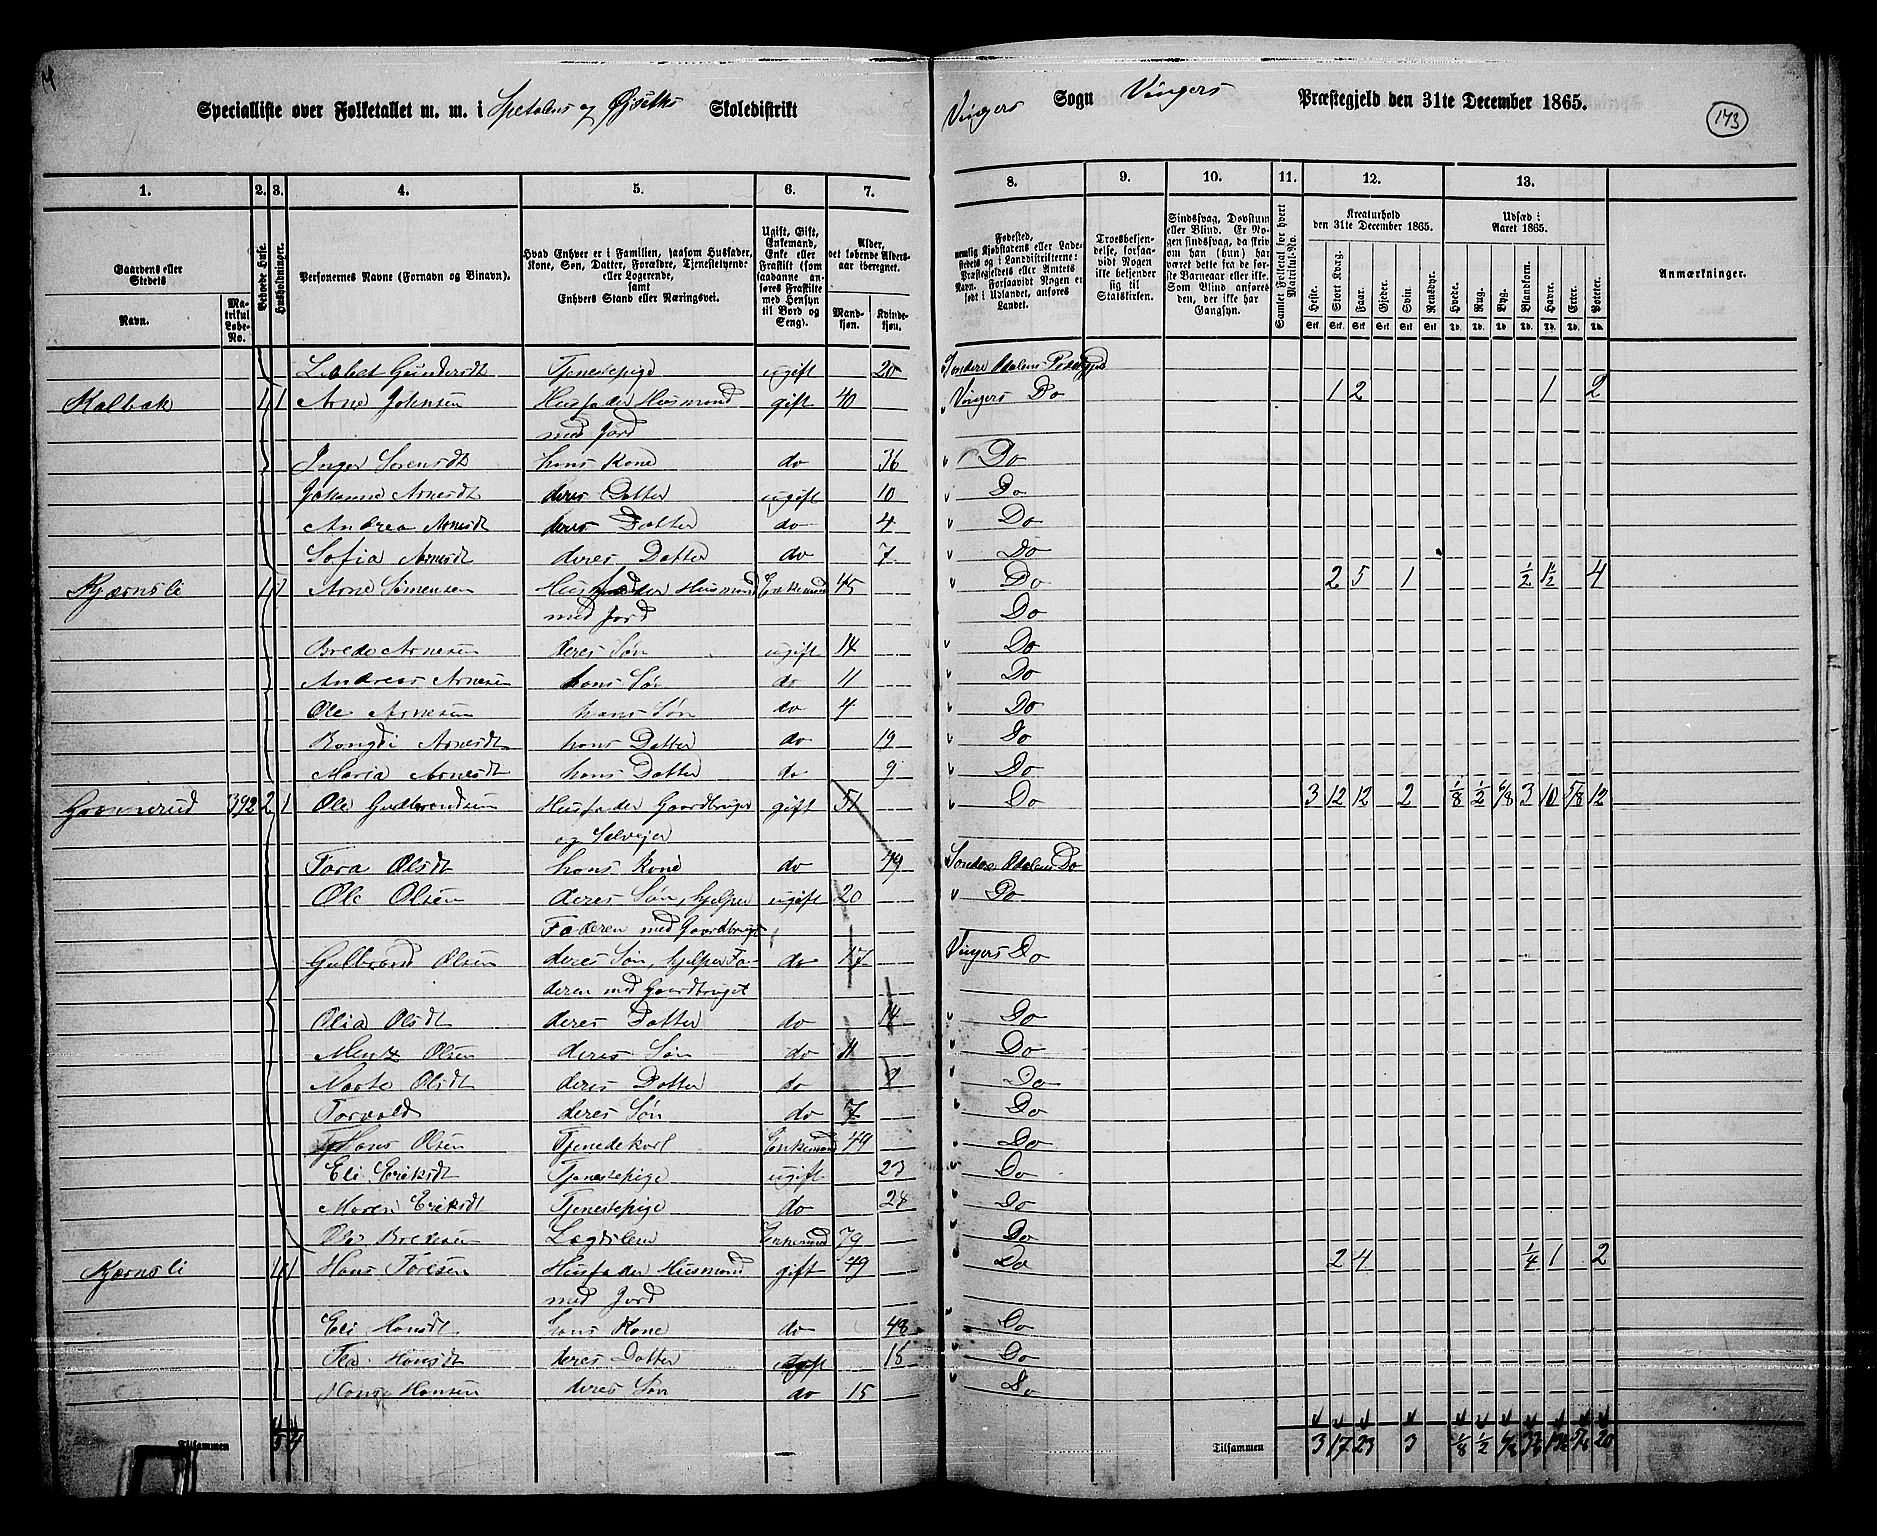 Specialliste over Folketallet m. m. i Spetalens og Øiseths Skoledistrikt Vingers Sogn Vingers Præstegjeld den 31te December 1865.
173
1. 2. 3. 4. 5. 6. 7. 8. 9. 10. 11. 12. 13.
Gaardens eller Stedets Navn.
Matrikul Løbe-No.
Beboede Huse.
Husholdninger.
Personernes Navne (Fornavn og Binavn).
Hvad Enhver er i Familien, saasom Husfader, Kone, Søn, Datter, Forældre, Tjenestetyende eller Logerende, samt Enhvers Stand eller Næringsvei.
Ugift, Gift, Enkemand, Enke eller Fraskilt (som saadanne anføres Fraskilte med Hensyn til Bord og Seng).
Alder, det løbende Aldersaar iberegnet.
Mandkjøn. Kvindekjøn.
Fødested, nemlig Kjøbstadens eller Ladestedets og i Landdistrikterne: Præstegjeldets eller Amtets Navn. Forsaavidt Nogen er født i Udlandet, anføres Landet.
Troesbekjendelse, forsaavidt Nogen ikke bekjender sig til Statskirken.
Sindssvag, Døvstum eller Blind. Er Nogen sindssvag, da skrives om han (hun) har været dette fra de første Barneaar eller ikke. Som Blind anføres den, der ikke har Gangsyn.
Samlet Folketal for hvert Matrikul-No.
Kreaturhold den 31te December 1865.
Heste. Stort Kvæg. Faar. Gjeder. Svin. Rensdyr.
Udsæd i Aaret 1865.
Hvede. Rug. Byg. Blandkorn. Havre. Erter. Poteter.
Anmærkninger.
Stk. Stk. Stk. Stk. Stk. Stk. Td. Td. Td. Td. Td. Td. Td.
Gundersdt Tjenestepige ugift 20 Søndre Odalens
Kalbak 1 1 Arne Johnsen Husfader Husmand gift 40 Vingers Do 1 2 1 2
med Jord
Inger Sorensdt hans Kone do 36 Do
Johanne Arnesdt deres Datter ugift 10 Do
Andrea Arnesdt deres Datter do 4 Do
Sofia Arnesdt deres Datter do 7 Do
Kjærnsli 1 1 Arne Simensen Husfader Husmand Enkemand 45 Do 2 5 1 1/2 1 1/2 4
med Jord Do
Brede Arnesen deres Søn ugift 14 Do
Andreas Arnesen hans Søn do 11 Do
Ole Arnesen hans Søn do 4 Do
Arnesdt hans Datter do 19 Do
Maria Arnesdt hans Datter do 9 Do
392 2 1 Ole Gudbrandsen Husfader Gaardbruger gift 51 Do 3 12 12 2 1/8 1/2 6/8 3 10 5/8 12
og Selveier
Tora Olsdt hans Kone do 49 Søndre Odalens Do
Ole Olsen deres Søn, hjelper ugift 20 Do
Faderen med Gaardbruget
Gulbrand Olsen deres Søn, hjelper Fa- do 17 Vingers Do
deren med Gaardbruget
Olia Olsdt deres Datter do 14 Do
Mentz Olsen deres Søn do 11 Do
Marte Olsdt deres Datter do Do
Torvald deres Søn do 7 Do
Hans Olsen Tjenedekarl Enkemand 49 Do
Eli Eriksdt Tjenestepige ugift 23 Do
Maren Eriksdt Tjenestepige do 28 Do
Ole Bredesen Lægdslem Enkemand 79 Do
Kjærnsli 1 1 Hans Toresen Husfader Husmand gift 49 Do 2 4 1/4 1 2
med Jord
Eli Hansdt hans Kone do 48 Do
Tea Hansdt deres Datter ugift 18 Do
Hansen deres Søn do 15 Do
Tilsammen 5 4 Tilsammen 3 17 23 3 1/8 1/2 6/8 5/8 20